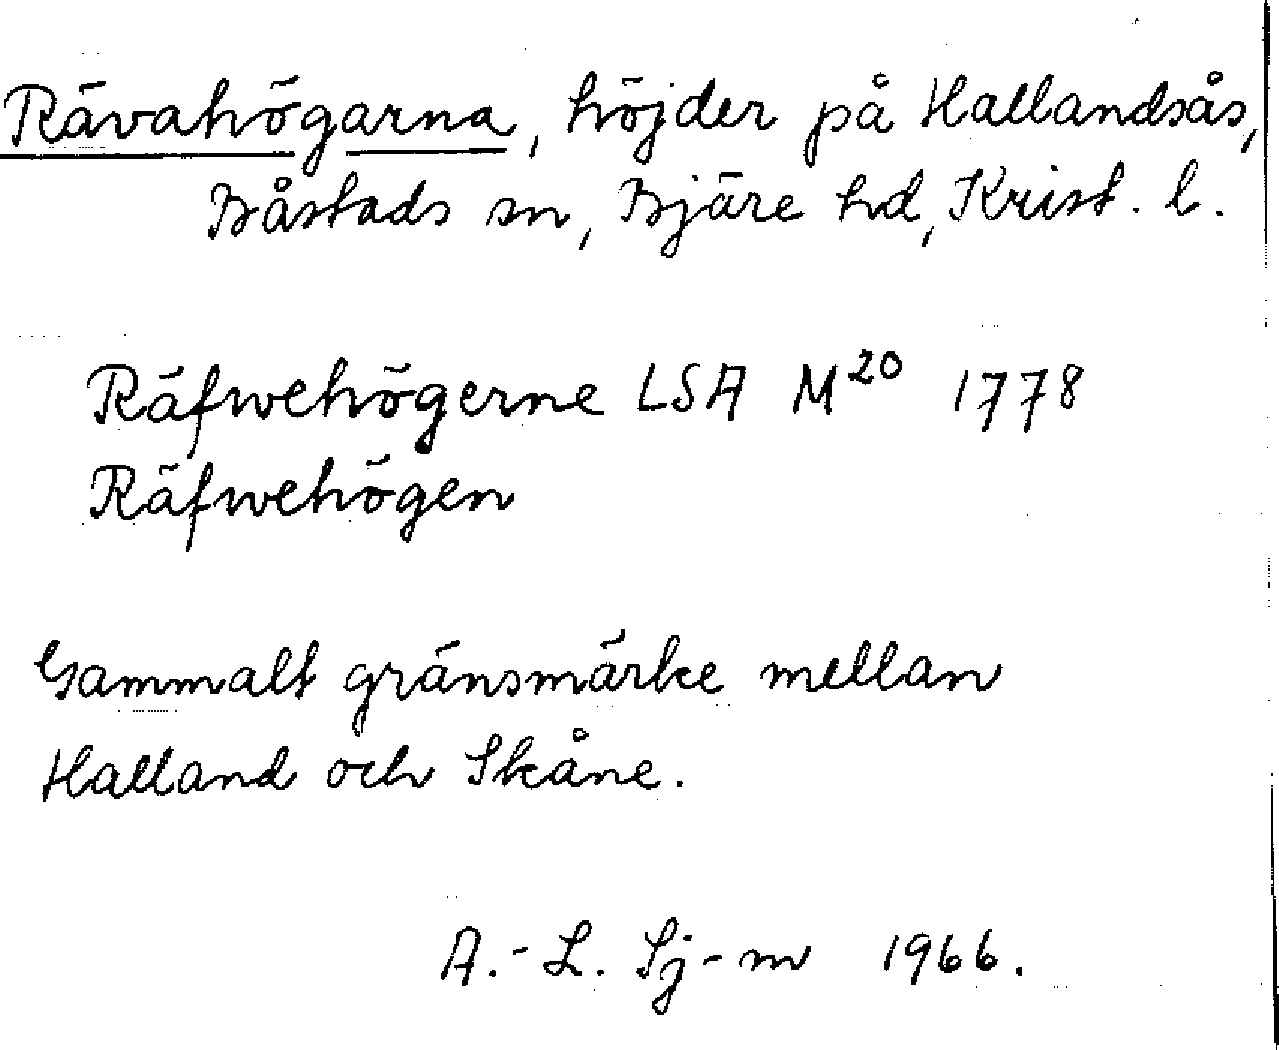 Rävahögarna, höjder på Hallandsås,
Båstads sn, Bjäre hd, Krist. l.
Räfwehögerne LSA M²⁰ 1778
Räfwehögen
Gammalt gränsmärke mellan
Halland och Skåne.
A.-L. Sj-m 1966.